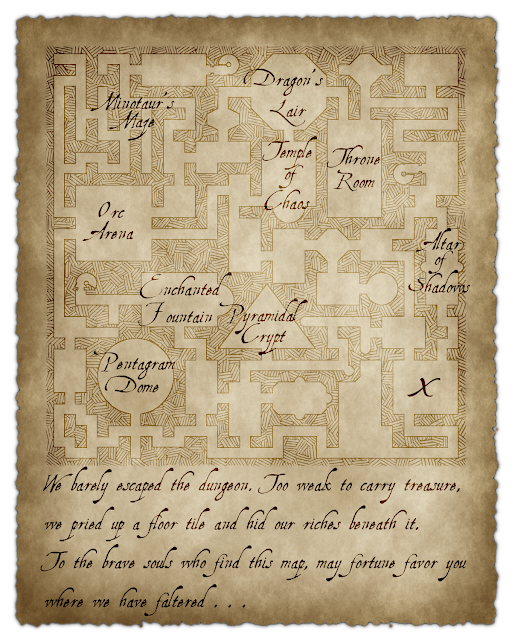 Dragon's
Lair
Minotaur's
Maze
Temple
of
Chaos
Throne
Room
Orc
Arena
Altar
of
Shadows
Enchanted
Fountain
Pyramidal
Crypt
Pentagram
Dome
X
We barely escaped the dungeon. Too weak to carry treasure,
we pried up a floor tile and hid our riches beneath it.
To the brave souls who find this map, may fortune favor you
where we have faltered . . .